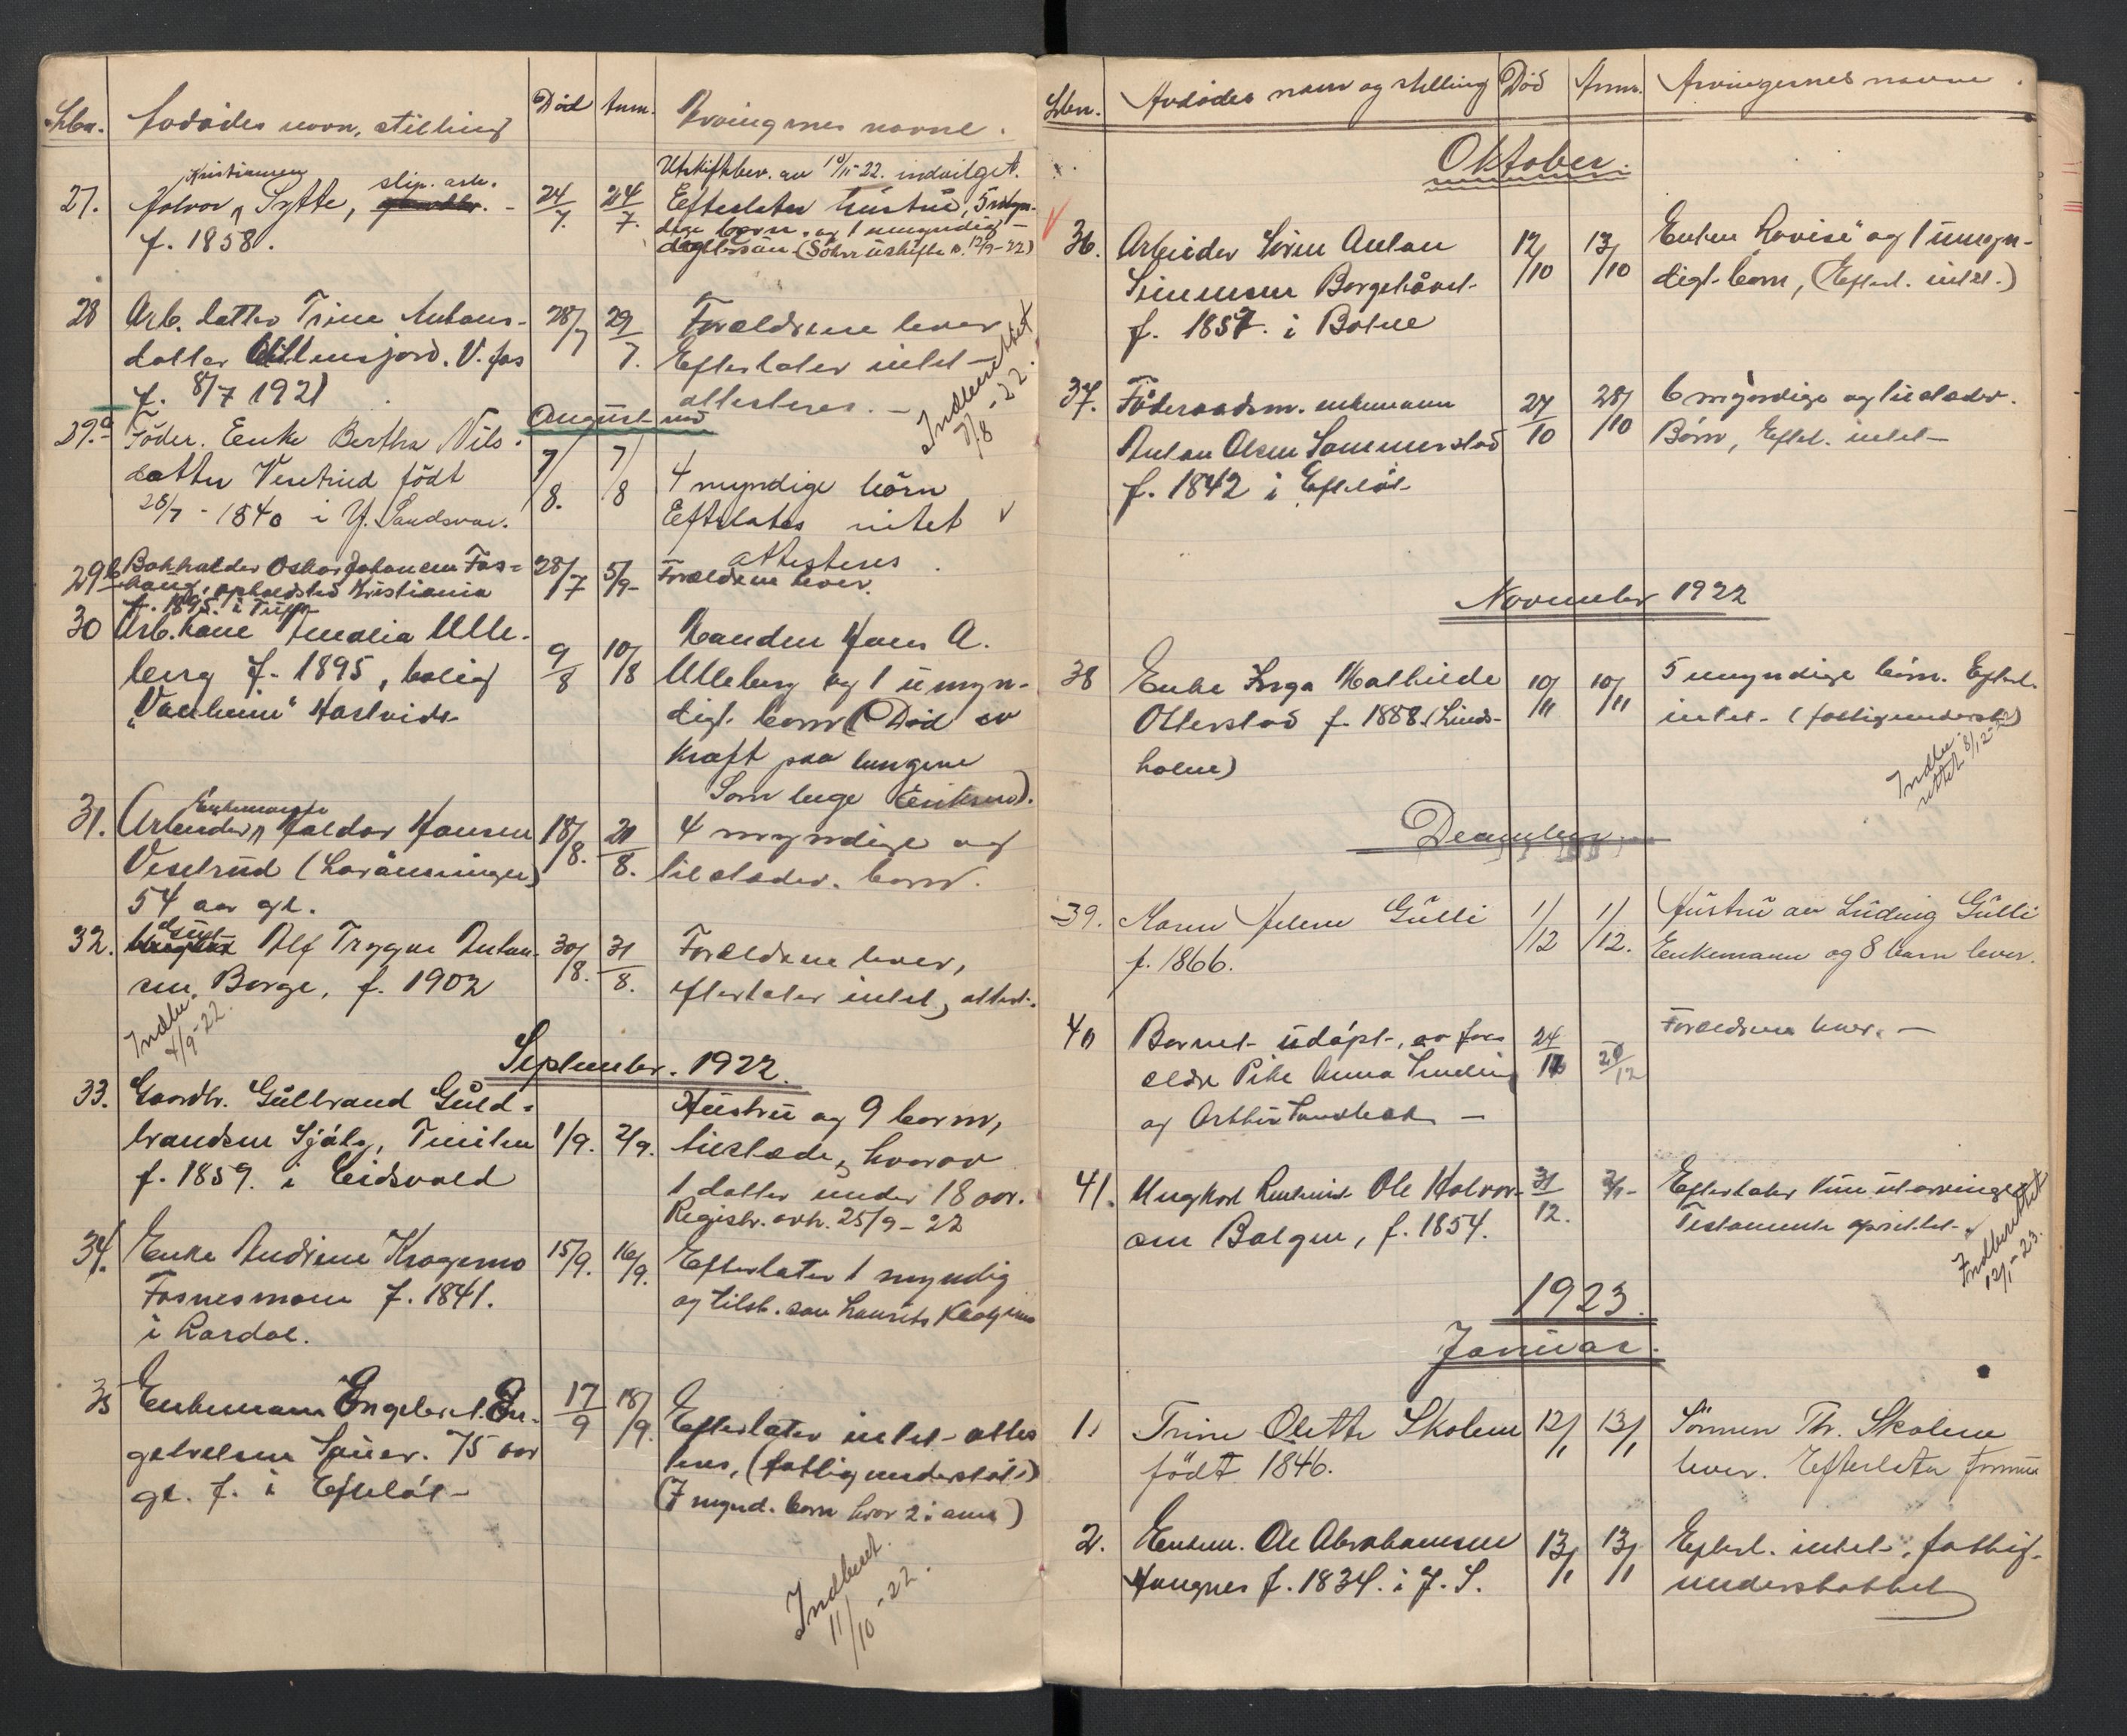 Lbn. Avdødes navn, stilling Død Anm. Arvingernes navne.
Utskiftbev. av 10/11-22. indvilget.
Kristiansen slip. arb.
27. Halvor Sytte, 24/7. 24/7. Efterlater hustru, 5 myn-
f. 1858. dige børn og 1 umyndig
dattersøn
28 Arb. datter Trine Antons- 28/7 29/7. Forældrene lever
datter Ullensjord. V. fos Efterlater intet
f. 8/7 1921 attesteres. —
Indberettet 7/8-22.
August
29.a Føder. Enke Bertha Nils- 7/8. 7/8 4 myndige børn
datter Vesetrud født Efterlates intet
28/7 - 1840 i Y. Sandsvær. attesteres.
29b Bokholder Oskar Johansen Fos- 28/7 5/9- Forældrene lever.
haug, opholdsted Kristiania
f. 1895. i
30 Arb. kone Amalia Ulle- 9/8 10/8 Manden Hans A.
berg f. 1895, bolig Ulleberg og 1 umyn-
"Vanheim" Hostvidt digt barn (Død av
Kræft paa lungene
Som lege Eriksen).
Enkemand
31. Arbeider Haldor Hansen 18/8. 21/8. 4 myndige og
Vesetrud tilstedev. børn.
54 aar gl.
32. Alf Trygve Anton- 30/8. 31/8. Forældrene lever,
sen Borge, f. 1902 efterlater intet, attest.
Indb. 4/9-22.
September. 1922.
33. Gaardbr. Gulbrand Guld- 1/9. 2/9. Hustru og 9 barn,
brandsen f. 1859. i Eidsvold tilstæde, hvorav
1 datter under 18 aar.
Registr. avh. 25/9-22
34. Enke Andrine Kragerno 15/9. 16/9. Efterlater 1 myndig
Fosnesmoen f. 1841. og tilst. søn Laurits Kragerno
i Lardal.
35 Enkemann Engebret En- 17/9 18/9. Efterlater intet attes
gebretsen Sauer. 75 aar teres, (fattigunderstøt.)
gl. f. i Efteløt (7 mynd. børn hvor 2 i ame)
Indberet. 11/10-22.
Lbn. Avdødes navn og stilling Død Anm. Arvingernes navne.
Oktober.
36. Arbeider Søren Anton 12/10 13/10 Enken Lovise og 1 umyn-
Simensen Borgehåvet digt barn, (Efterl. intet.)
f. 1857. i Botne
37. Føderaadsm. enkemann 27/10 28/10 6 myndige og tilstedev.
Anton Olsen Sommerstad Børn, Efterl. intet —
f. 1842 i Efteløt
November 1922
38 Enke Inga Mathilde 10/11 10/11 5 umyndige børn. Efterl.
Otterstad f. 1888. (Linds- intet - (fattigunderst.)
holm)
Indberettet 8/12-22
December
39. Maren Helene Gulli 1/12 1/12. Hustru av Ludvig Gulli
f. 1866. Enkemann og 8 barn lever.
40 Barnet udøpt, av for- 24/12 29/12 Forældrene lever. —
ældre Pike Anna
og Arthur
41. Ungkarl Ole Halvor- 31/12. 2/1- Efterlater kun utarvinger
sen Bolgen, f. 1854. Testamente oprettet.
Indberettet 12/1-23.
1923.
Januar.
1. Trine Olette Skolem 12/1 13/1 Sønnen Th. Skolem
født 1846. lever. Efterlater formue
2. Enkem. Ole Abrahamsen 13/1 13/1 Efterl. intet, fattig-
Haugnes f. 1834. i J. S. understøttet